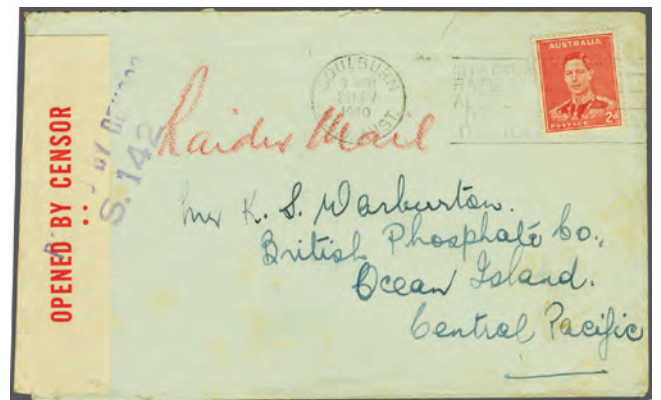 OPENED BY CENSOR
BY CENSOR
S. 142
GOULBURN
1940
Raider Mail
AUSTRALIA
POSTAGE 2d
Mr K. S. Warburton.
British Phosphate Co.,
Ocean Island.
Central Pacific